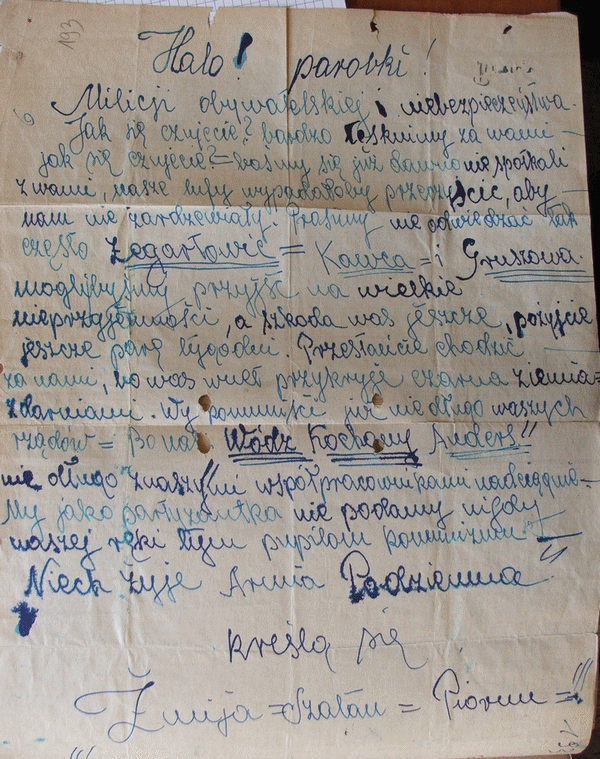 193
Halo! parobki!
Milicji obywatelskiej i niebezpieczeństwa.
Jak się czujecie? bardzo tęsknimy za wami –
jak się czujecie? – bośmy się już dawno nie spotkali
z wami, nasze lufy wypadałoby przeczyścić, aby –
nam nie zardzewiały. Prosimy nie odwiedzać tak
często Zegartowic = Kawca = i Gruszowa.
moglibyśmy przyjść na wielkie
nieprzyjemności, a szkoda was jeszcze, pożyjcie
jeszcze parę tygodni. Przestańcie chodzić
za nami, bo was wnet przykryje czarna ziemia =
z darniami. Wy komuniści już nie długo waszych
rządów = Bo nasz Wódz Kochany Anders"
nie długo z naszymi współpracownikami nadciągnie –
My jako partyzantka nie podamy nigdy
waszej ręki tym pupilom komunizmu. =
Niech żyje Armia Podziemna"
kreślą się
Żmija = Szatan = Piorun =